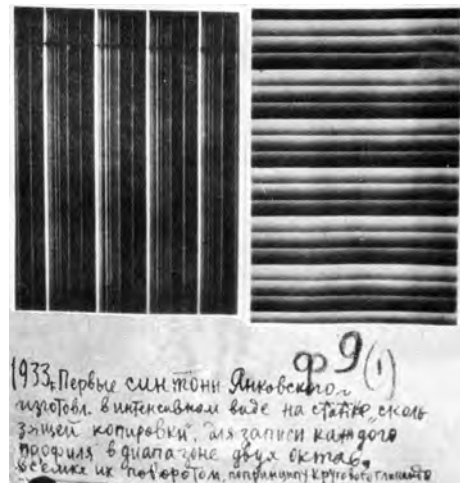 ф 9 (1)
1933г. Первые синтоны Янковского
изготовл. в интенсивном виде на станке „сколь
зящей копировки", для записи каждого
профиля в диапазоне двух октав,
съемка их поворотом, по принципу кругового